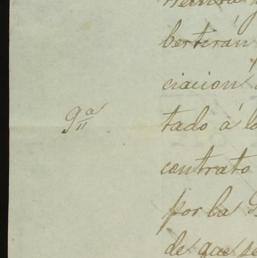 bertirán
ciacion
9ª
tado á lo
contrato
por la
de que se